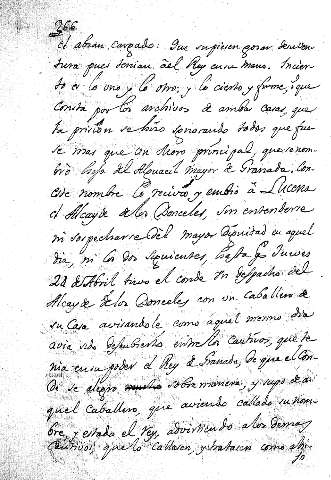 366
el abian, cargado: Que supiesen gozar de su ven
tura pues tenian al Rey en su mano. Incier
to es lo uno, y lo otro, y lo cierto y firme, que
consta por los archivos de ambas casas, que
la prision se hizo ignorando todos que fue
se mas que un Moro principal, que se nom
bró hijo del Alguacil mayor de Granada. Con
este nombre lo recivió y embió a Lucena
el Alcayde de los Donceles, sin entenderse
ni sospecharse del mayor Dignidad en aquel
dia, ni los dos siguientes, hasta q Jueves
24 de Abril tuvo el conde Un despacho del
Alcayde de los Donceles con un Caballero de
su Casa avisandole como aquel mesmo dia
avia sido descubierto entre los Cautivos, que te
nia en su poder el Rey de Granada, de que el Con
de se alegro sobre manera, y supo de a
quel Caballero, que aviendo callado su nom
bre, y estado el Rey, advirtiendo a los demas
Cautivos, que lo callasen, y tratasen como a hi
jo